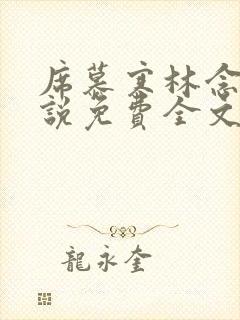 席慕寒林念
說免費全文
龍永奎